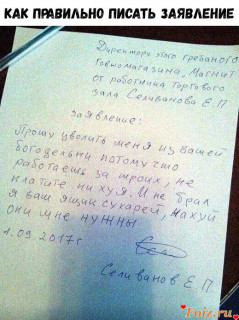 КАК ПРАВИЛЬНО ПИСАТЬ ЗАЯВЛЕНИЕ
Директору этого гребаного
Говномагазина, Магнит
от работника торгового
зала Селиванова Е.П
Заявление:
Прошу уволить меня из вашей
богодельни потому что
работаешь за троих, не
платите ни хуя. И не брал
я ваш ящик сухарей, нахуй
они мне нужны
1.09.2017г
Селиванов Е.П
Fotz.ru